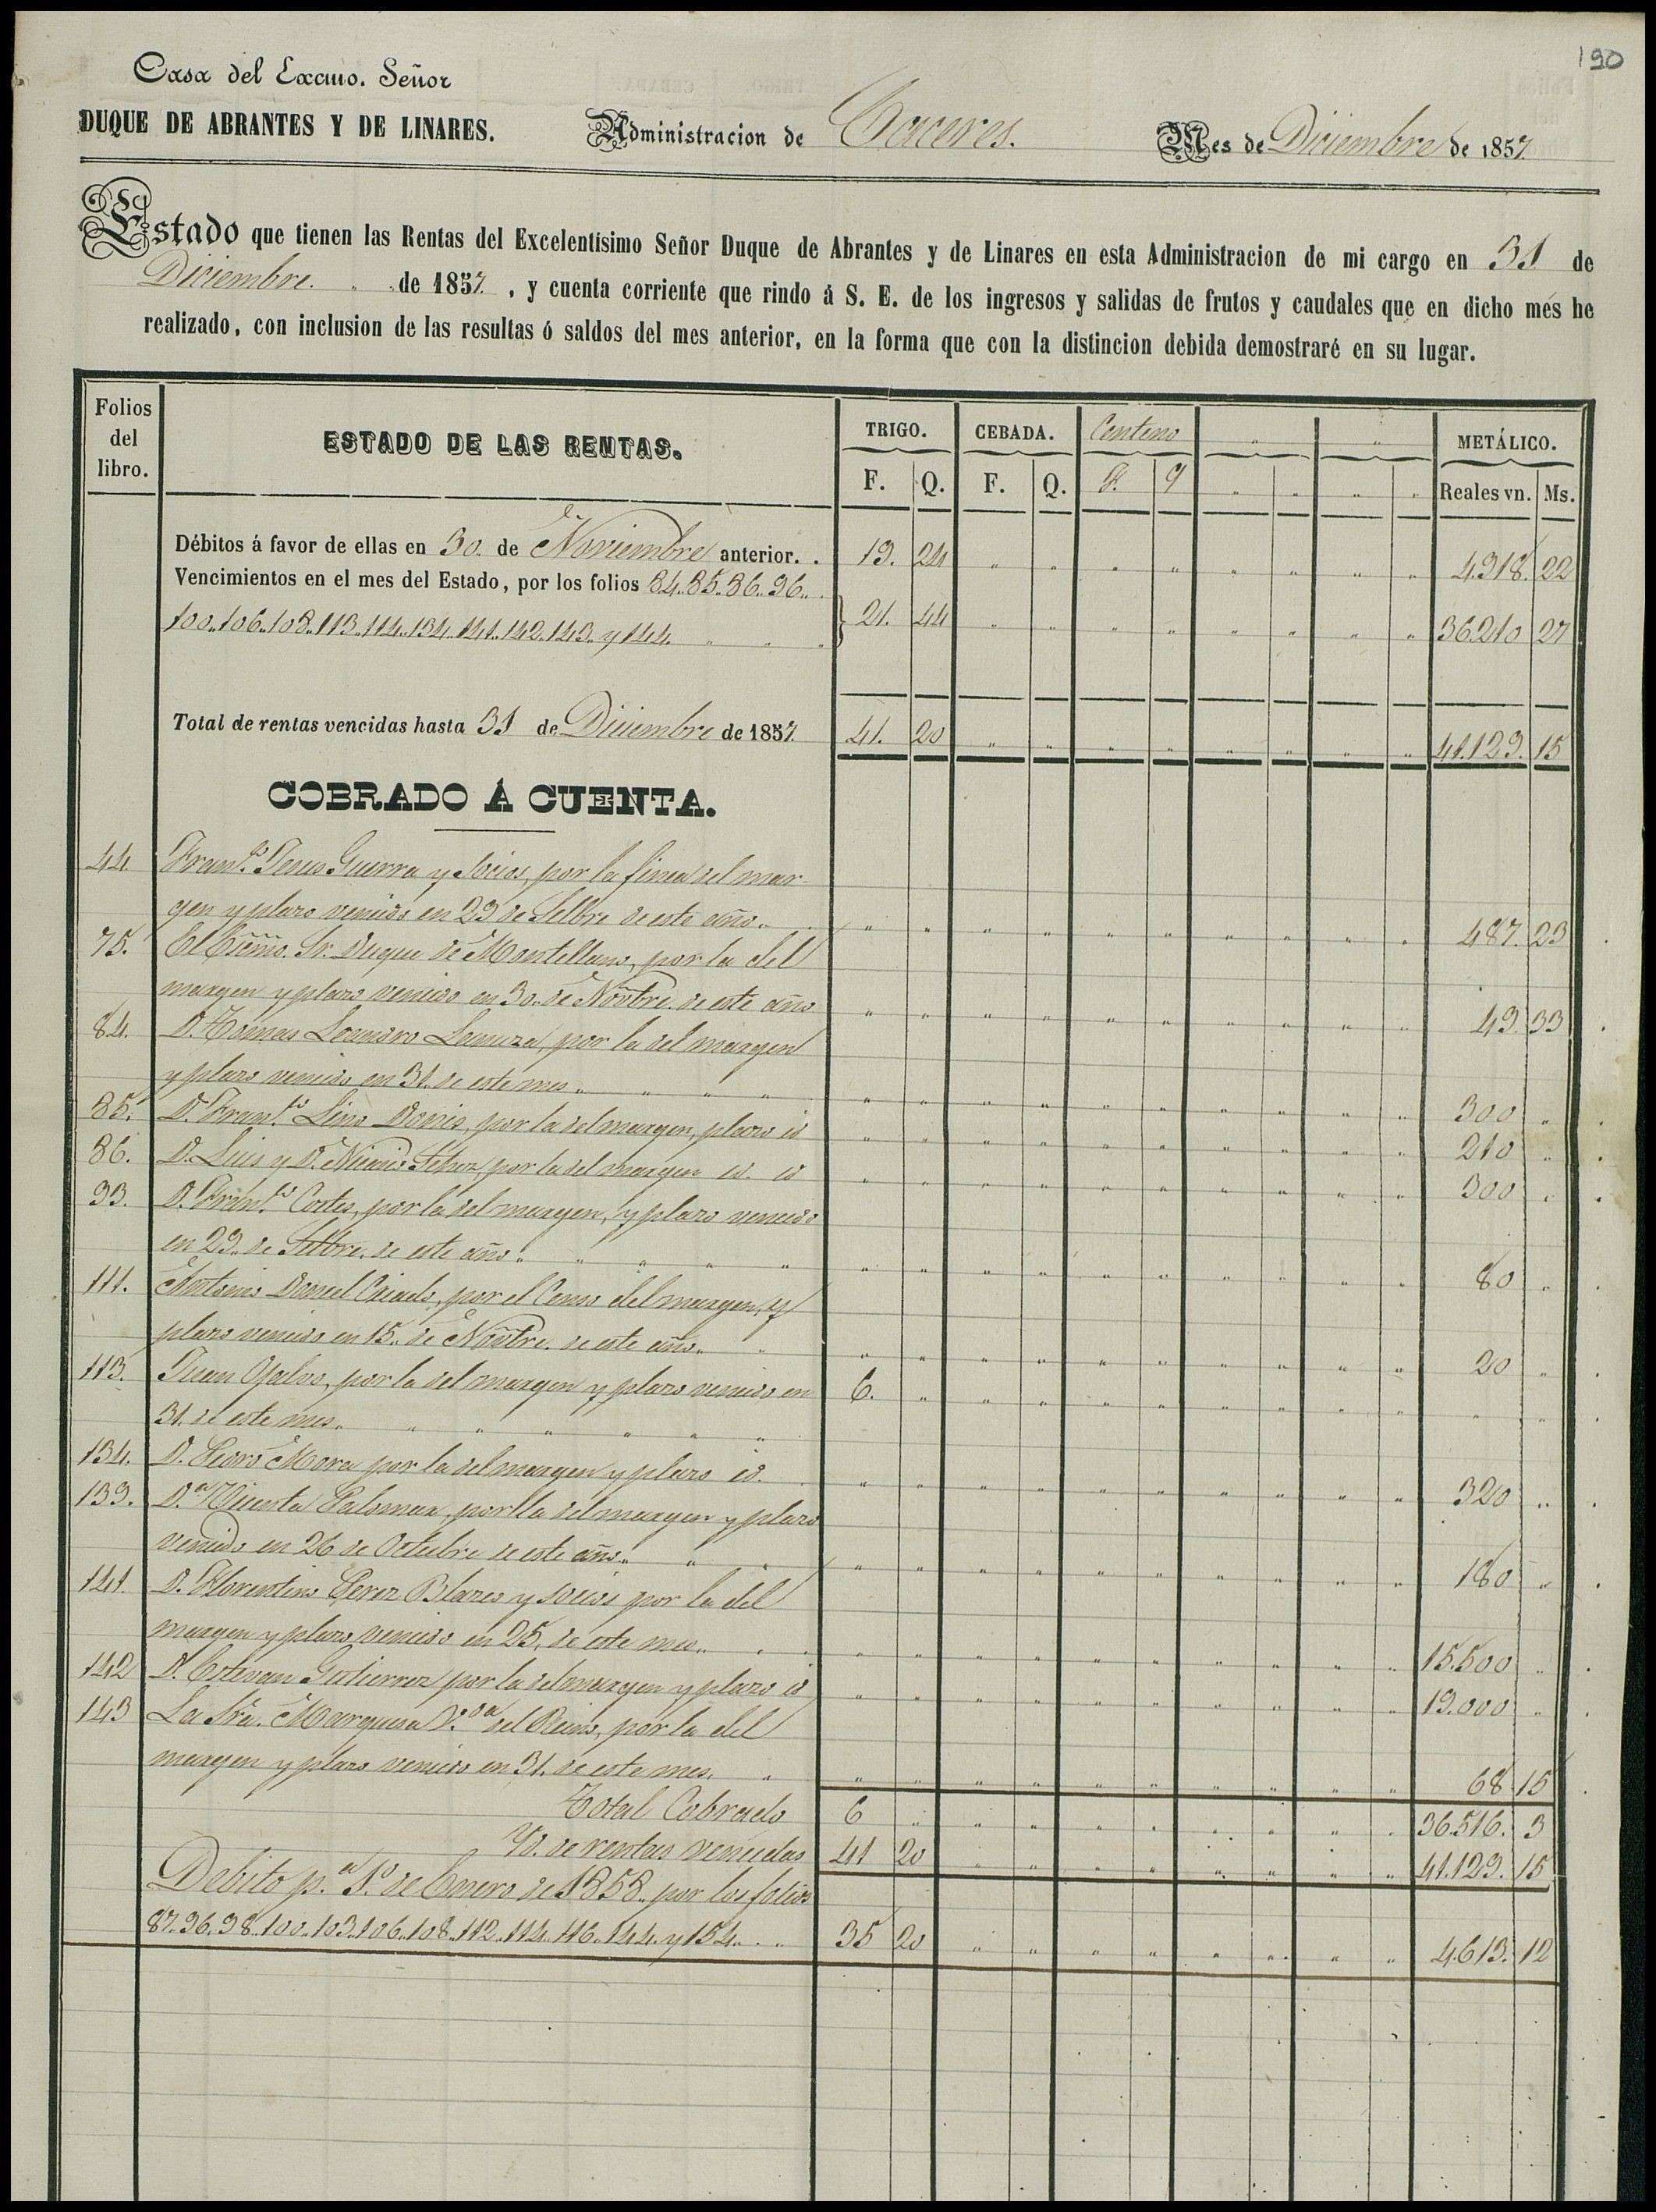 190
Casa del Excmo. Señor
DUQUE DE ABRANTES Y DE LINARES. Administracion de Caceres. Mes de Diciembre de 1857.
Estado que tienen las Rentas del Excelentísimo Señor Duque de Abrantes y de Linares en esta Administracion de mi cargo en 31 de
Diciembre. de 1857. , y cuenta corriente que rindo á S. E. de los ingresos y salidas de frutos y caudales que en dicho mes he
realizado, con inclusion de las resultas ó saldos del mes anterior, en la forma que con la distincion debida demostraré en su lugar.
Folios del libro. ESTADO DE LAS RENTAS. TRIGO. CEBADA. Centeno " " METÁLICO.
F. Q. F. Q. F. Q " " " " Reales vn. Ms.
Débitos á favor de ellas en 30. de Noviembre anterior. . 19. 24 " " " " " " " " 4.918. 22
Vencimientos en el mes del Estado, por los folios 84..85..86..96..
100..106..108..113..114..134..141..142..143.. y 144. 21. 44 " " " " " " " " 36210 27
Total de rentas vencidas hasta 31 de Diciembre de 1857. 41. 20 " " " " " " " " 41.129. 15
COBRADO Á CUENTA.
44. Franco. Jesus Guerra y Socios, por la finca del mar-
gen y plazo vencido en 29 de Setbre de este año.. " " " " " " " " " " 487. 23
75. El Excmo. Sr. Duque de Montellano, por la del
margen y plazo vencido en 30. de Novbre. de este año " " " " " " " " " " 49. 33
84. D. Tomas Leandro Lamuza, por la del margen
y plazo vencido en 31. de este mes.. " " " " " " " " " " " " " 300 "
85. D. Franco. Lino Donis, por la del margen, plazo id " " " " " " " " " " 210 "
86. D. Luis y D. Nicasio por la del margen id. id " " " " " " " " " " 300 "
93. D. Franco. Cortes, por la del margen, y plazo vencido
en 29.. de Setbre. de este año. " " " " " " " " " " " " " " 80 "
111. Antonio Doncel Criado, por el Censo del margen, y
plazo vencido en 15.. de Novbre. de este año.. " " " " " " " " " " " 20 "
113. Juan Ojalvo, por la del margen y plazo vencido en 6. " " " " " " " " " " "
31. de este mes. " " " " " "
134. D. Pedro Mora por la del margen y plazo id. " " " " " " " " " " 320 "
139. Da. Vicenta Palomar, por la del margen y plazo
vencido en 26 de Octubre de este año.. " " " " " " " " " " " " 180 "
141. D. Florentino Perez Blazco y socios por la del
margen y plazo vencido en 25. de este mes.. " " " " " " " " " " 15.500 "
142 D. Estevan Gutierrez por la del margen y plazo id " " " " " " " " " " 19.000 "
143 La Sra. Marquesa Vda. del Reino, por la del
margen y plazo vencido en 31. de este mes. " " " " " " " " " " " 68 15
Total Cobrado 6 " " " " " " " " " 36.516. 3
Yd. de rentas vencidas 41 20 " " " " " " " " 41.129. 15
Debito pa. 1o. de Enero de 1858.. por los folios
87..96..98..100..103..106..108..112..114..116..144. y 154.. 35 20 " " " " " " " " 4.613. 12